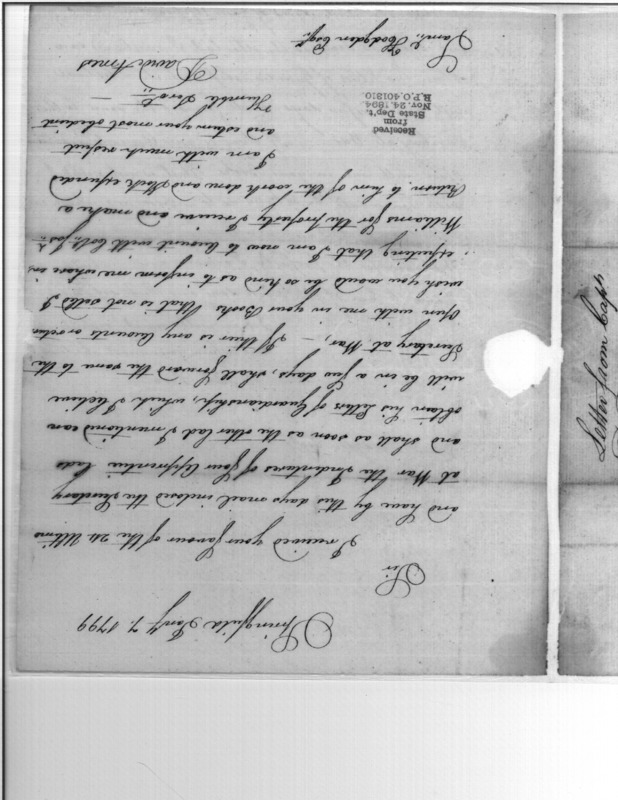 Springfield Jany 7 1799
Sir
I received your favour of the 24 Ultimo
and have by this days mail inclosed the Secretary
at War the Indentures of four Apprentice lads
and shall as soon as the other lad I mentioned can
obtain his Letters of Guardianship, which I believe
will be in a few days, shall forward the same to the
Secretary at War, – If there is any Accounts or
open with me in your Books that is not settled I
wish you would be so kind as to inform me where in,
expecting that I am now to Account with
Williams for the property I receive and make a
Return to him of the work done and Stock expended
I am with much respect
and esteem your most obedient
Humble Servt
David Ames
Saml Hodgdon Esqr
Received
from
State Dep't.
Nov. 24, 1894
R.P.O. 401810
Letter from Capt